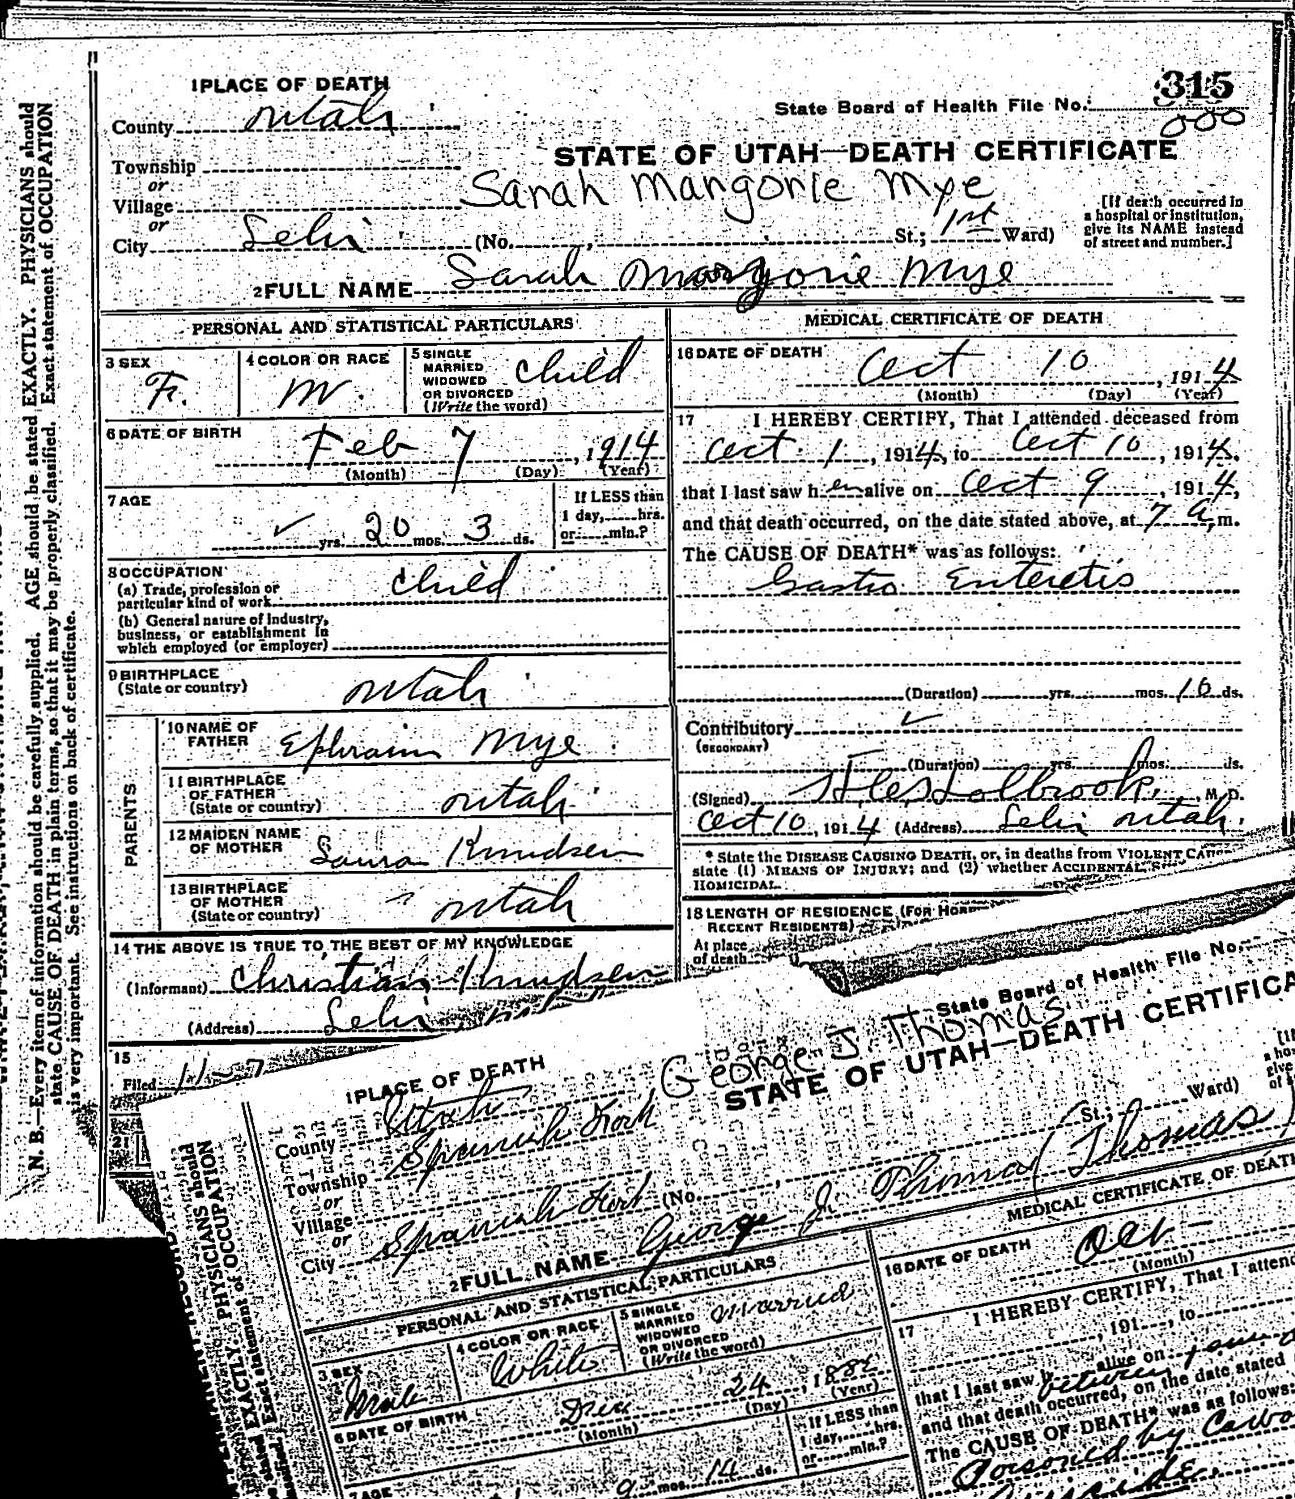 1 PLACE OF DEATH
315
State Board of Health File No.
000
County Utah
STATE OF UTAH—DEATH CERTIFICATE
Township
or
Sarah Margorie Mye
Village
or
[If death occurred in
a hospital or institution,
give its NAME instead
of street and number.]
City Lehi (No. , St.; 1st Ward)
2 FULL NAME Sarah Margorie Mye
PERSONAL AND STATISTICAL PARTICULARS
3 SEX
F.
4 COLOR OR RACE
W.
5 SINGLE
MARRIED
WIDOWED
OR DIVORCED
(Write the word)
child
6 DATE OF BIRTH
Feb 7, 1914
(Month) (Day) (Year)
7 AGE
yrs. 20 mos. 3 ds.
If LESS than
1 day, hrs.
or min.?
8 OCCUPATION
(a) Trade, profession or
particular kind of work
child
(b) General nature of industry,
business, or establishment in
which employed (or employer)
9 BIRTHPLACE
(State or country)
Utah
PARENTS
10 NAME OF
FATHER
Ephraim Mye
11 BIRTHPLACE
OF FATHER
(State or country)
Utah
12 MAIDEN NAME
OF MOTHER
Laura Knudsen
13 BIRTHPLACE
OF MOTHER
(State or country)
Utah
14 THE ABOVE IS TRUE TO THE BEST OF MY KNOWLEDGE
(Informant) Christian Knudsen
(Address) Lehi,
15
Filed 11-7
MEDICAL CERTIFICATE OF DEATH
16 DATE OF DEATH
Oct 10, 1914
(Month) (Day) (Year)
17 I HEREBY CERTIFY, That I attended deceased from
Oct 1, 1914, to Oct 10, 1914,
that I last saw her alive on Oct 9, 1914,
and that death occurred, on the date stated above, at 7 a. m.
The CAUSE OF DEATH* was as follows:
Gastro Enteretis
(Duration) yrs. mos. 10 ds.
Contributory
(SECONDARY)
(Duration) yrs. mos. ds.
(Signed) Holbrook, M. D.
Oct 10, 1914 (Address) Lehi Utah.
* State the DISEASE CAUSING DEATH, or, in deaths from VIOLENT
state (1) MEANS OF INJURY; and (2) whether ACCIDENTAL,
HOMICIDAL.
18 LENGTH OF RESIDENCE (FOR
RECENT RESIDENTS)
At place
of death
N. B.—Every item of information should be carefully supplied. AGE should be stated EXACTLY. PHYSICIANS should
state CAUSE OF DEATH in plain terms, so that it may be properly classified. Exact statement of OCCUPATION
is very important. See instructions on back of certificate.
State Board of Health File No.
George J. Thomas
1 PLACE OF DEATH
STATE OF UTAH—DEATH CERTIFICA
County Utah
Township Spanish Fork
or
Village
or
City Spanish Fork (No. St.; Ward)
2 FULL NAME George J. Thoma (Thomas)
PERSONAL AND STATISTICAL PARTICULARS
3 SEX
Male
4 COLOR OR RACE
White
5 SINGLE
MARRIED
WIDOWED
OR DIVORCED
(Write the word)
Married
6 DATE OF BIRTH
24, 188
(Month) (Day) (Year)
7 AGE
9 mos. 14 ds.
If LESS than
1 day, hrs.
or min.?
MEDICAL CERTIFICATE OF DEATH
16 DATE OF DEATH
Oct
(Month)
17 I HEREBY CERTIFY, That I attend
, 191 , to
that I last saw h alive on
between
and that death occurred, on the date stated
The CAUSE OF DEATH* was as follows:
Poisoned by Carbo
PHYSICIANS should
stated EXACTLY.
Exact statement of OCCUPATION